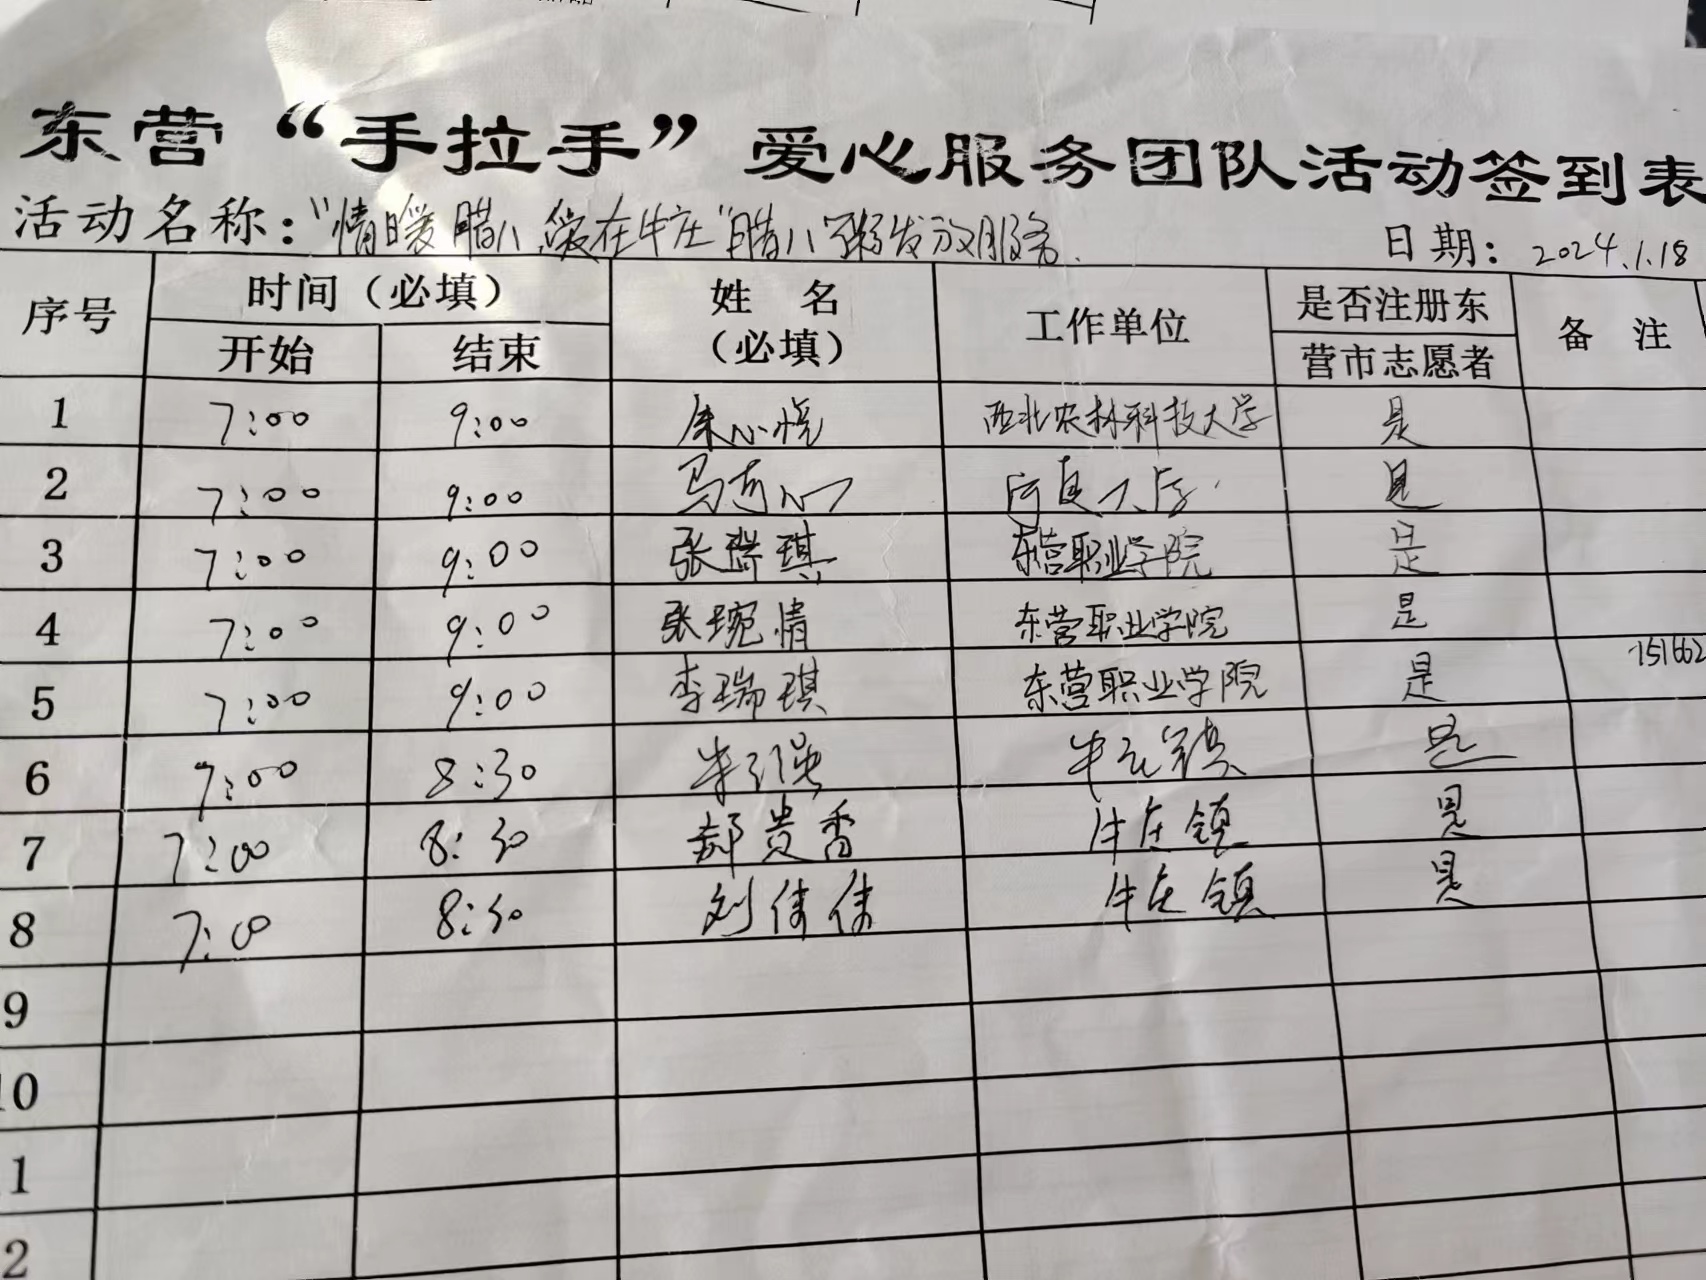 东营“手拉手”爱心服务团队活动签到表
活动名称：“情暖腊八，爱在牛庄”腊八粥发放服务. 日期：2024.1.18
序号 时间（必填） 姓名（必填） 工作单位 是否注册东营市志愿者 备注
开始 结束
1 7:00 9:00 心悦 西北农林科技大学 是
2 7:00 9:00 马 是
3 7:00 9:00 张瑞琪 东营职业学院 是
4 7:00 9:00 张琬情 东营职业学院 是
151662
5 7:00 9:00 李瑞琪 东营职业学院 是
6 7:00 8:30 牛庄镇 是
7 7:00 8:30 郝贵香 牛庄镇 是
8 7:00 8:30 刘倩倩 牛庄镇 是
9
10
1
2